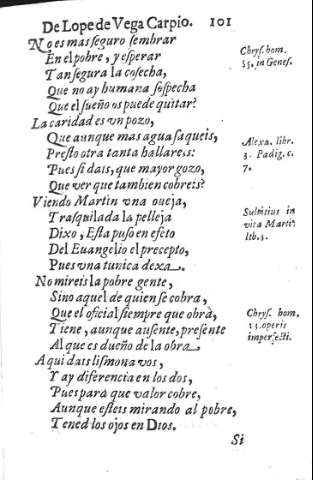 De Lope de Vega Carpio. 101
No es mas seguro sembrar
En el pobre, y esperar
Tan segura la cosecha,
Que no ay humana sospecha
Que el sueño os puede quitar?
La caridad es vn pozo,
Que aunque mas agua saqueis,
Presto otra tanta hallareis:
Pues si dais, que mayor gozo,
Que ver que tambien cobreis?
Viendo Martin vna oueja,
Trasquilada la pelleja
Dixo, Esta puso en efeto
Del Euangelio el precepto,
Pues vna tunica dexa.
No mireis la pobre gente,
Sino aquel de quien se cobra,
Que el oficial siempre que obra,
Tiene, aunque ausente, presente
Al que es dueño de la obra.
Aqui dais limosna vos,
Y ay diferencia en los dos,
Pues para que valor cobre,
Aunque esteis mirando al pobre,
Tened los ojos en Dios.
Si
Chrys. hom.
55. in Genes.
Alexa. libr.
3. Padig. c.
7.
Sulpitius in
vita Martin
lib. 3.
Chrys. hom.
13. operis
imperfecti.